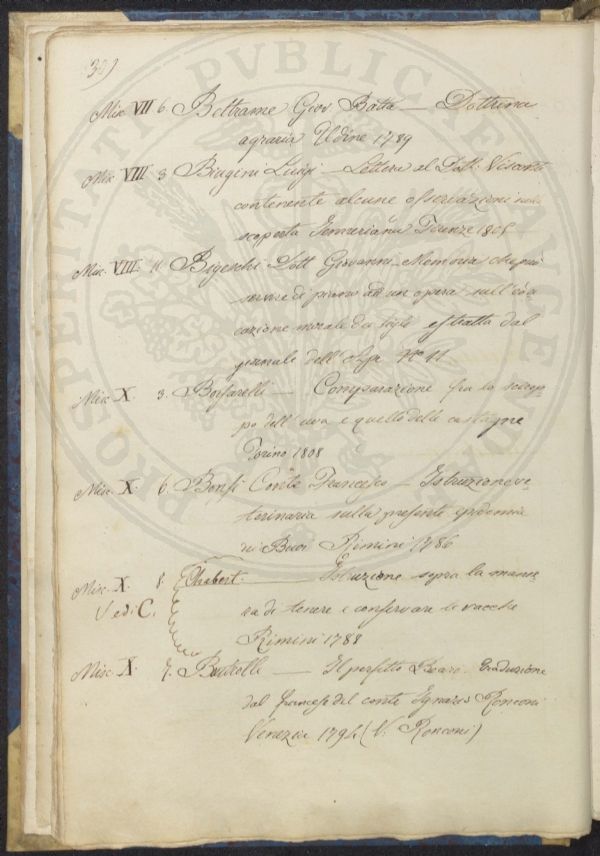 Misc VII 6 Beltrame Giov Batta — Dottrina
agraria Udine 1789
Misc VIII 3 Biagini Luigi — Lettera al Dott. Visconti
contenente alcune osservazioni
scoperta Firenze 180
Misc. VIII. 11 Bigeschi Dott Giovanni — Memoria che può
servire di piano ad un opera sull'edu
cazione morale dei figli estratta dal
giornale dell' N° 11
Misc X. 3. Bonfarelli — Comparazione fra lo scirop-
po dell'uva e quello delle castagne
Torino 1808
Misc. X. 6 Bonsi Conte Francesco — Istruzione ve-
terinaria sulla presente epidemia
dei Buoi Rimini 1786
Misc. X. 8. Chabert. — Istruzione sopra la manie
Vedi C. ra di tenere e conservare le vacche
Rimini 1788
Misc. X 7. — Il perfetto Traduzione
dal francese del conte Ignazio Ronconi
Venezia 179 (V. Ronconi)
PROSPERITATI PVBLICAE AVGENDAE